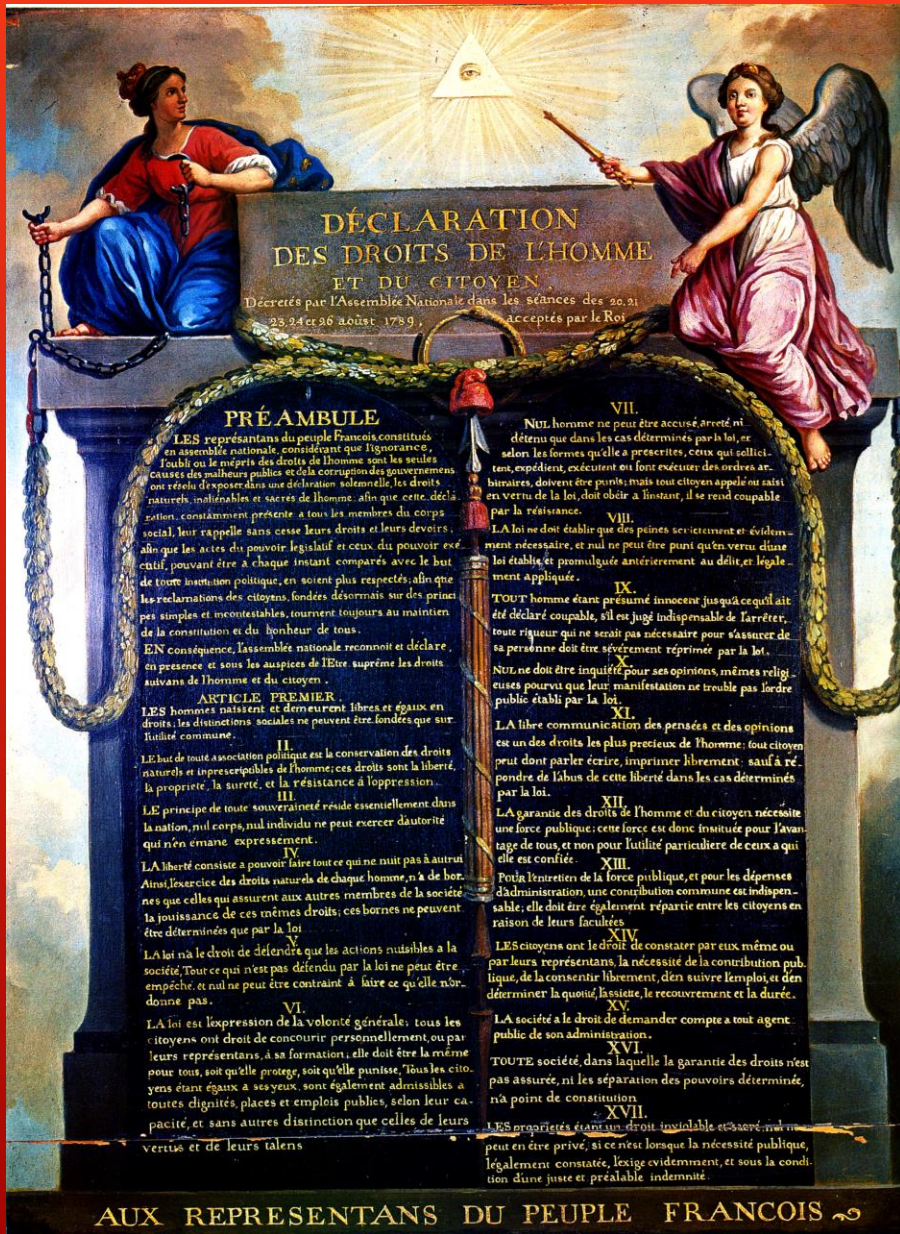 DÉCLARATION
DES DROITS DE L'HOMME
ET DU CITOYEN,
Décretés par l'Assemblée Nationale dans les séances des 20. 21
23. 24 et 26 août 1789, acceptés par le Roi
PRÉAMBULE
LES représentans du peuple Francois, constitués
en assemblée nationale, considérant que l'ignorance,
l'oubli ou le mépris des droits de l'homme sont les seules
causes des malheurs publics et de la corruption des gouvernemens
ont résolu d'exposer dans une déclaration solemnelle, les droits
naturels, inaliénables et sacrés de l'homme: afin que cette décla
ration, constamment présente a tous les membres du corps
social, leur rappelle sans cesse leurs droits et leurs devoirs;
afin que les actes du pouvoir legislatif et ceux du pouvoir exé
cutif, pouvant être a chaque instant comparés avec le but
de toute institution politique, en soient plus respectés; afin que
les reclamations des citoyens, fondées désormais sur des princi
pes simples et incontestables, tournent toujours au maintien
de la constitution et du bonheur de tous.
EN conséquence, l'assemblée nationale reconnoit et déclare,
en presence et sous les auspices de l'Etre suprême les droits
suivans de l'homme et du citoyen.
ARTICLE PREMIER.
LES hommes naissent et demeurent libres et égaux en
droits; les distinctions sociales ne peuvent être fondées que sur
l'utilité commune.
II.
LE but de toute association politique est la conservation des droits
naturels et inprescriptibles de l'homme; ces droits sont la liberté,
la propriete, la sureté, et la résistance à l'oppression.
III.
LE principe de toute souveraineté réside essentiellement dans
la nation, nul corps, nul individu ne peut exercer d'autorité
qui n'en émane expressement.
IV.
LA liberté consiste a pouvoir faire tout ce qui ne nuit pas à autrui
Ainsi, l'exercice des droits naturels de chaque homme, n'a de bor-
nes que celles qui assurent aux autres membres de la société
la jouissance de ces mêmes droits; ces bornes ne peuvent
être déterminées que par la loi
V.
LA loi n'a le droit de défendre que les actions nuisibles a la
société, Tout ce qui n'est pas défendu par la loi ne peut être
empêché, et nul ne peut être contraint à faire ce qu'elle n'or-
donne pas.
VI.
LA loi est l'expression de la volonté générale; tous les
citoyens ont droit de concourir personnellement, ou par
leurs représentans, à sa formation; elle doit être la même
pour tous, soit qu'elle protege, soit qu'elle punisse, Tous les cito-
yens étant égaux a ses yeux, sont également admissibles a
toutes dignités, places et emplois publics, selon leur ca-
pacité, et sans autres distinction que celles de leurs
vertus et de leurs talens
VII.
NUL homme ne peut être accusé, arreté, ni
détenu que dans les cas déterminés par la loi, et
selon les formes qu'elle a prescrites, ceux qui sollici-
tent, expédient, exécutent ou font exécuter des ordres ar-
bitraires, doivent être punis; mais tout citoyen appelé ou saisi
en vertu de la loi, doit obéir a l'instant, il se rend coupable
par la résistance.
VIII.
LA loi ne doit établir que des peines strictement et évidem-
ment nécessaire, et nul ne peut être puni qu'en vertu d'une
loi établie et promulguée antérierement au délit, et légale-
ment appliquée.
IX.
TOUT homme étant présumé innocent jusqu'à ce qu'il ait
été déclaré coupable, s'il est jugé indispensable de l'arrêter,
toute rigueur qui ne serait pas nécessaire pour s'assurer de
sa personne doit être sévèrement réprimée par la loi.
X.
NUL ne doit être inquiété pour ses opinions, mêmes religi-
euses pourvu que leur manifestation ne trouble pas l'ordre
public établi par la loi.
XI.
LA libre communication des pensées et des opinions
est un des droits les plus precieux de l'homme; tout citoyen
peut dont parler écrire, imprimer librement: sauf à ré-
pondre de l'abus de cette liberté dans les cas déterminés
par la loi.
XII.
LA garantie des droits de l'homme et du citoyen nécessite
une force publique; cette force est donc instituée pour l'avan-
tage de tous, et non pour l'utilité particuliere de ceux a qui
elle est confiée.
XIII.
POUR l'entretien de la force publique, et pour les dépenses
d'administration, une contribution commune est indispen-
sable; elle doit être également répartie entre les citoyens en
raison de leurs facultées
XIV.
LES citoyens ont le droit de constater par eux même ou
par leurs représentans, la nécessité de la contribution pub-
lique, de la consentir librement, d'en suivre l'emploi, et d'en
déterminer la quotité, l'assiette, le recouvrement et la durée.
XV.
LA société a le droit de demander compte a tout agent
public de son administration.
XVI.
TOUTE société, dans laquelle la garantie des droits n'est
pas assurée, ni les séparation des pouvoirs déterminée,
n'a point de constitution
XVII.
LES proprietés étant un droit inviolable et sacré, nul ne
peut en être privé, si ce n'est lorsque la nécessité publique,
légalement constatée, l'exige evidemment, et sous la condi-
tion d'une juste et préalable indemnité.
AUX REPRESENTANS DU PEUPLE FRANCOIS